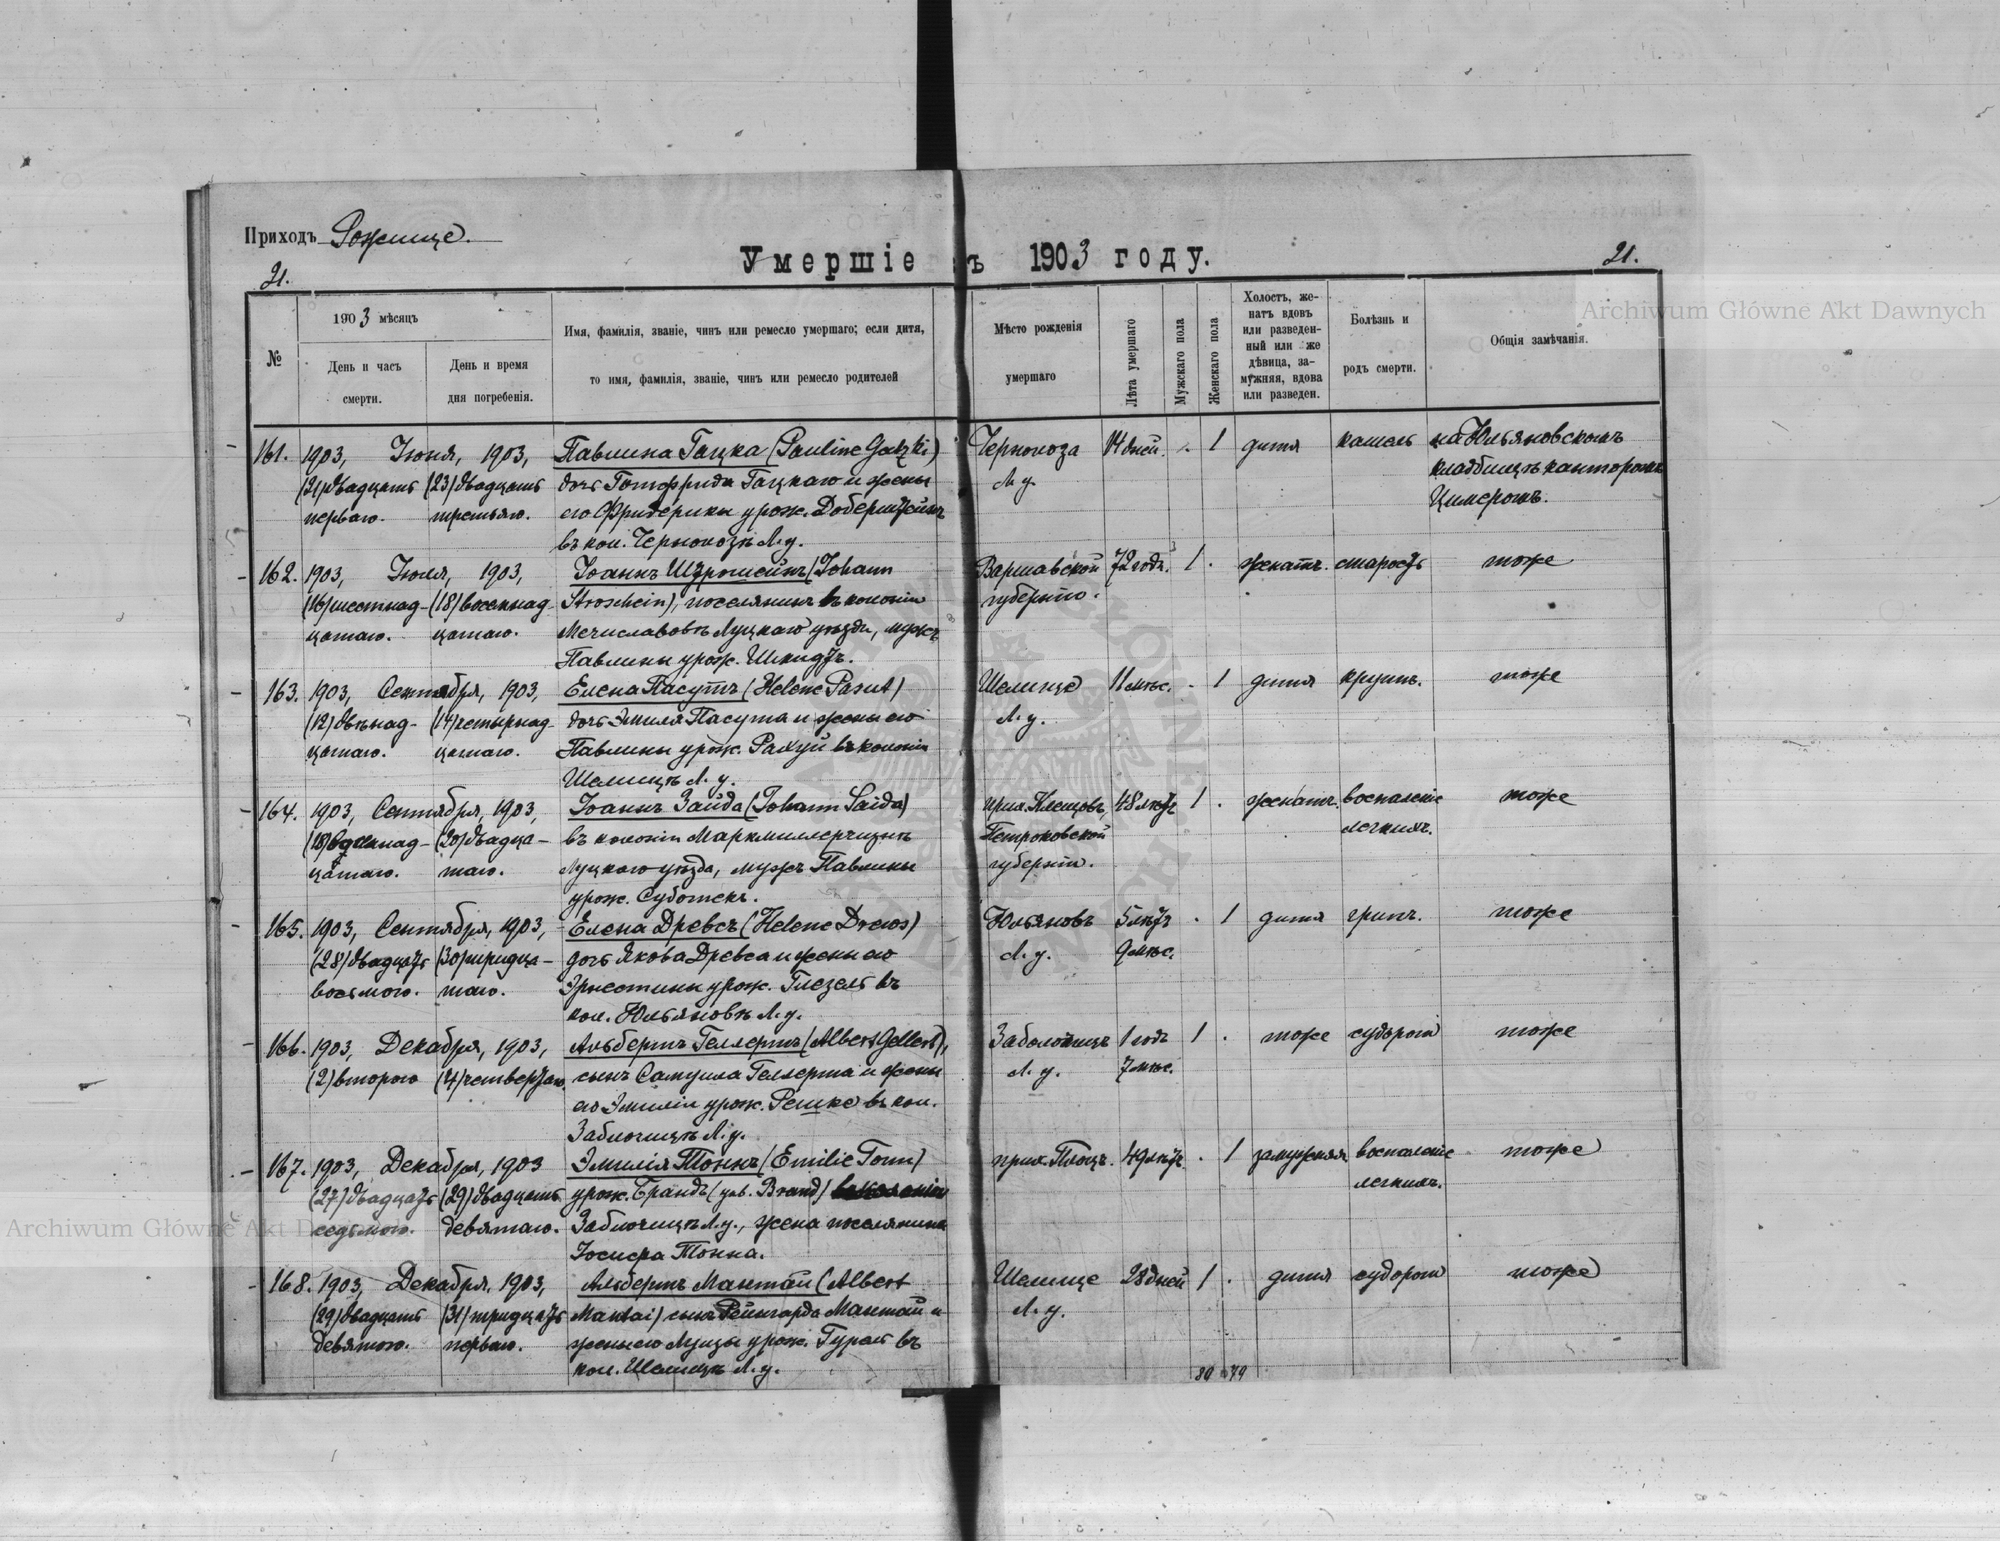 Приходъ Рожище.
Умершіе въ 1903 году.
21.
21.
№
1903 мѣсяцъ
День и часъ
смерти.
День и время
дня погребенія.
Имя, фамилія, званіе, чинъ или ремесло умершаго; если дитя,
то имя, фамилія, званіе, чинъ или ремесло родителей
Мѣсто рожденія
умершаго
Лѣта умершаго
Мужскаго пола
Женскаго пола
Холостъ, же-
натъ вдовъ
или разведен-
ный или же
дѣвица, за-
мужняя, вдова
или разведен.
Болѣзнь и
родъ смерти.
Общія замѣчанія.
161. 1903, Іюня, 1903, Павлина Гацка (Pauline Gatzki) Чернолоза 14 дней. . 1 дитя кашель на Юльяновскомъ
(21) двадцать (23) двадцать дочь Готфрида Гацкаго и жены Л. у. кладбищѣ канторомъ
перваго. третьяго. его Фридерики урож. Циммеромъ.
въ кол. Чернолозѣ Л. у.
162. 1903, Іюля, 1903, Іоаннъ Штрошейнъ (Johann Варшавской 72 года. 1 . женатъ. старость тоже
(16) шестнад- (18) восемнад- Stroschein), поселянинъ въ колоніи губерніи.
цатаго. цатаго. Мечиславовкѣ Луцкаго уѣзда, мужъ
Павлины урож. Шмидтъ.
163. 1903, Сентября, 1903, Елена Пасутъ (Helene Pasut) Шелище 11 мѣс. . 1 дитя крупъ. тоже
(12) двѣнад- (14) четырнад- дочь Эмиля Пасута и жены его Л. у.
цатаго. цатаго. Павлины урож. въ колоніи
Шелищѣ Л. у.
164. 1903, Сентября, 1903, Іоаннъ Зайда (Johann Saida) прих. 48 лѣтъ 1 . женатъ. воспаленіе тоже
(18) восемнад- (20) двадца- въ колоніи Петроковской легкихъ.
цатаго. таго. Луцкаго уѣзда, мужъ Павлины губерніи.
урож. Суботекъ.
165. 1903, Сентября, 1903, Елена Древсъ (Helene Drews) Юльяновъ 5 лѣтъ . 1 дитя грипъ. тоже
(28) двадцать (30) тридца- дочь Якова Древса и жены его Л. у. 9 мѣс.
восьмого. таго. Эрнстины урож. Глезель въ
кол. Юльяновѣ Л. у.
166. 1903, Декабря, 1903, Альбертъ Геллертъ (Albert Gellert), 1 годъ 1 . тоже судороги тоже
(2) второго (4) четвертаго. сынъ Самуила Геллерта и жены Л. у. 7 мѣс.
его Эмиліи урож. Решке въ кол.
Л. у.
167. 1903, Декабря, 1903 Эмилія Тоннъ (Emilie Tonn) прих. Плоцъ. 49 лѣтъ . 1 замужняя воспаленіе тоже
(27) двадцать (29) двадцать урож. Брандъ (geb. Brand) въ колоніи легкихъ.
седьмого. девятаго. Л. у., жена поселянина
Іосифа Тонна.
168. 1903, Декабря, 1903, Альбертъ Мантай (Albert Шелище 28 дней 1 . дитя судороги тоже
(29) двадцать (31) тридцать Mantai) сынъ Рейнгарда Мантай и Л. у.
девятаго. перваго. жены его Луизы урож. въ
кол. Шелищѣ Л. у.
89 79
Archiwum Główne Akt Dawnych
Archiwum Główne Akt Dawnych